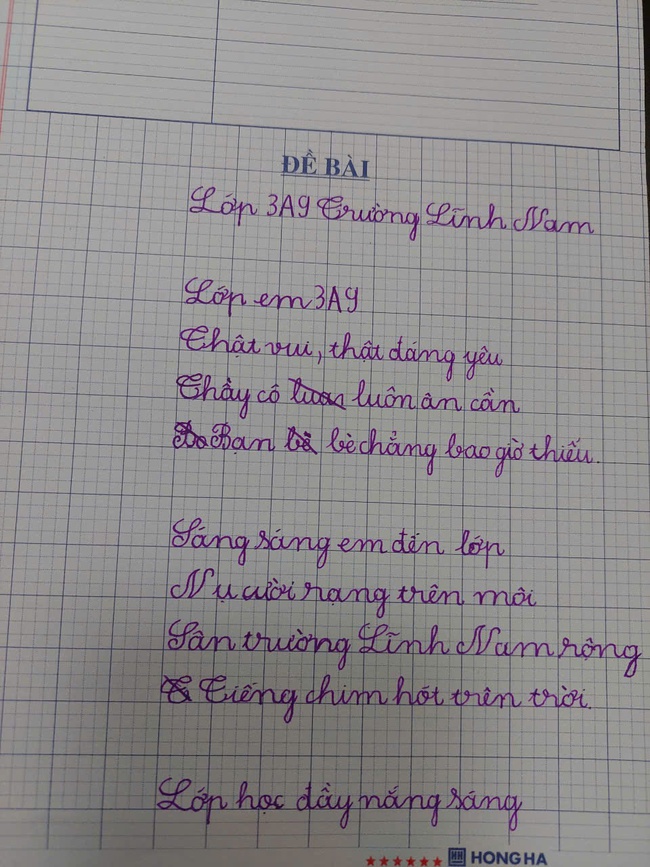 ĐỀ BÀI
Lớp 3A9 Trường Lĩnh Nam
Lớp em 3A9
Thật vui, thật đáng yêu
Thầy cô luôn ân cần
Bạn bè chẳng bao giờ thiếu.
Sáng sáng em đến lớp
Nụ cười rạng trên môi
Sân trường Lĩnh Nam rộng
Tiếng chim hót trên trời.
Lớp học đầy nắng sáng
HH HONG HA